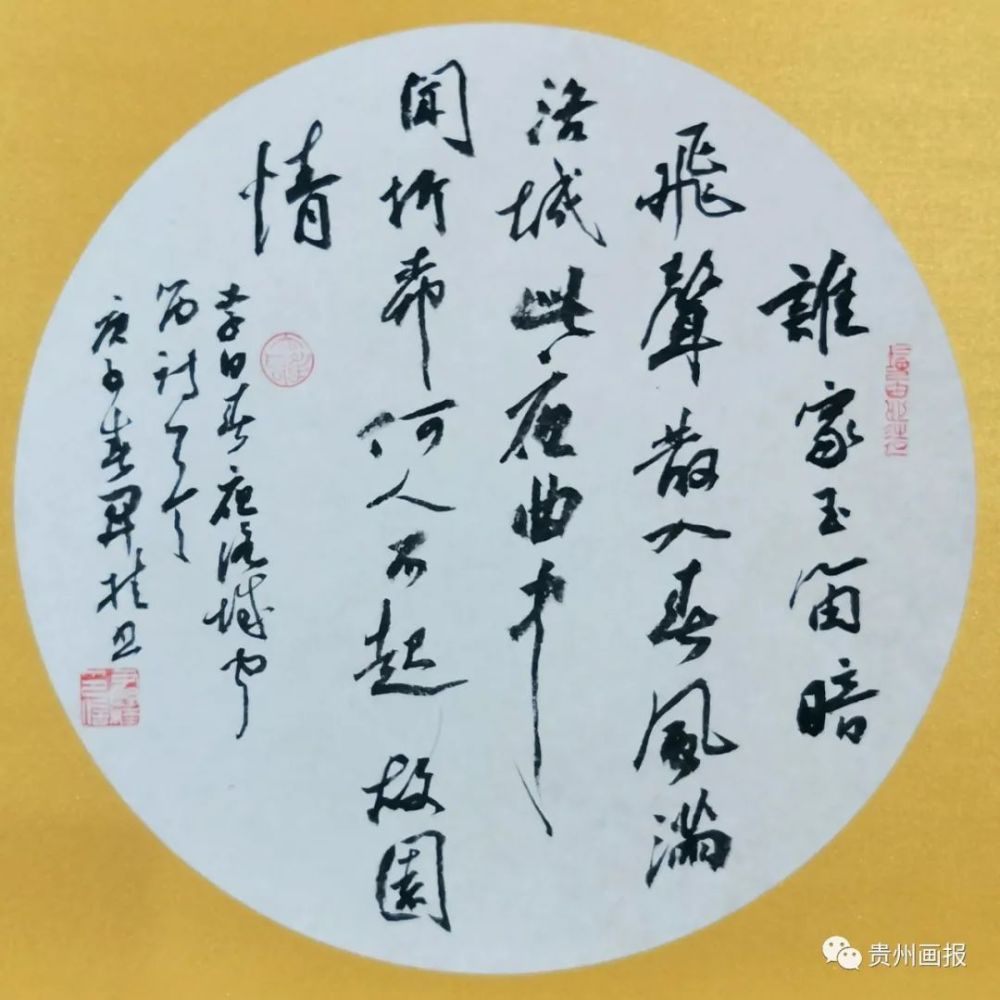 誰家玉笛暗
飛聲散入春風滿
洛城此夜曲中
聞折柳何人不起故園
情
李白春夜洛城聞
笛詩
庚子春
贵州画报